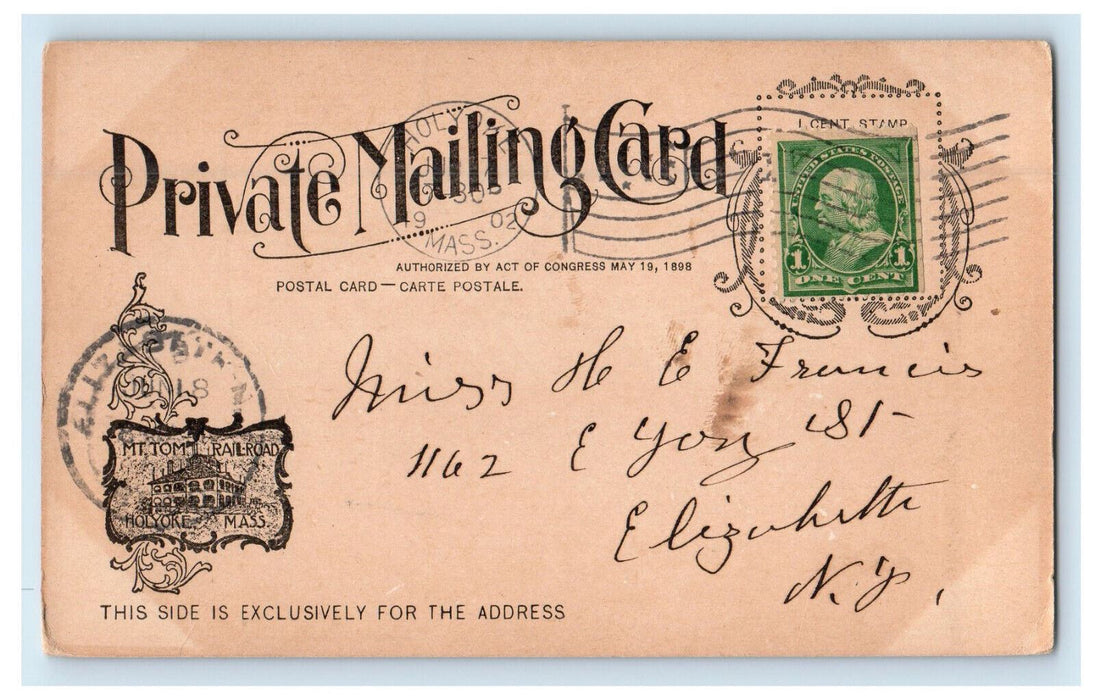 Private Mailing Card
HOLYOKE
30
19 02
MASS.
1 CENT STAMP
UNITED STATES POSTAGE
1 1
ONE CENT
AUTHORIZED BY ACT OF CONGRESS MAY 19, 1898
POSTAL CARD — CARTE POSTALE.
ELIZABETH N
Miss H E Francis
1162 E St
Elizabeth
N.J,
MT. TOM RAILROAD
HOLYOKE MASS.
THIS SIDE IS EXCLUSIVELY FOR THE ADDRESS